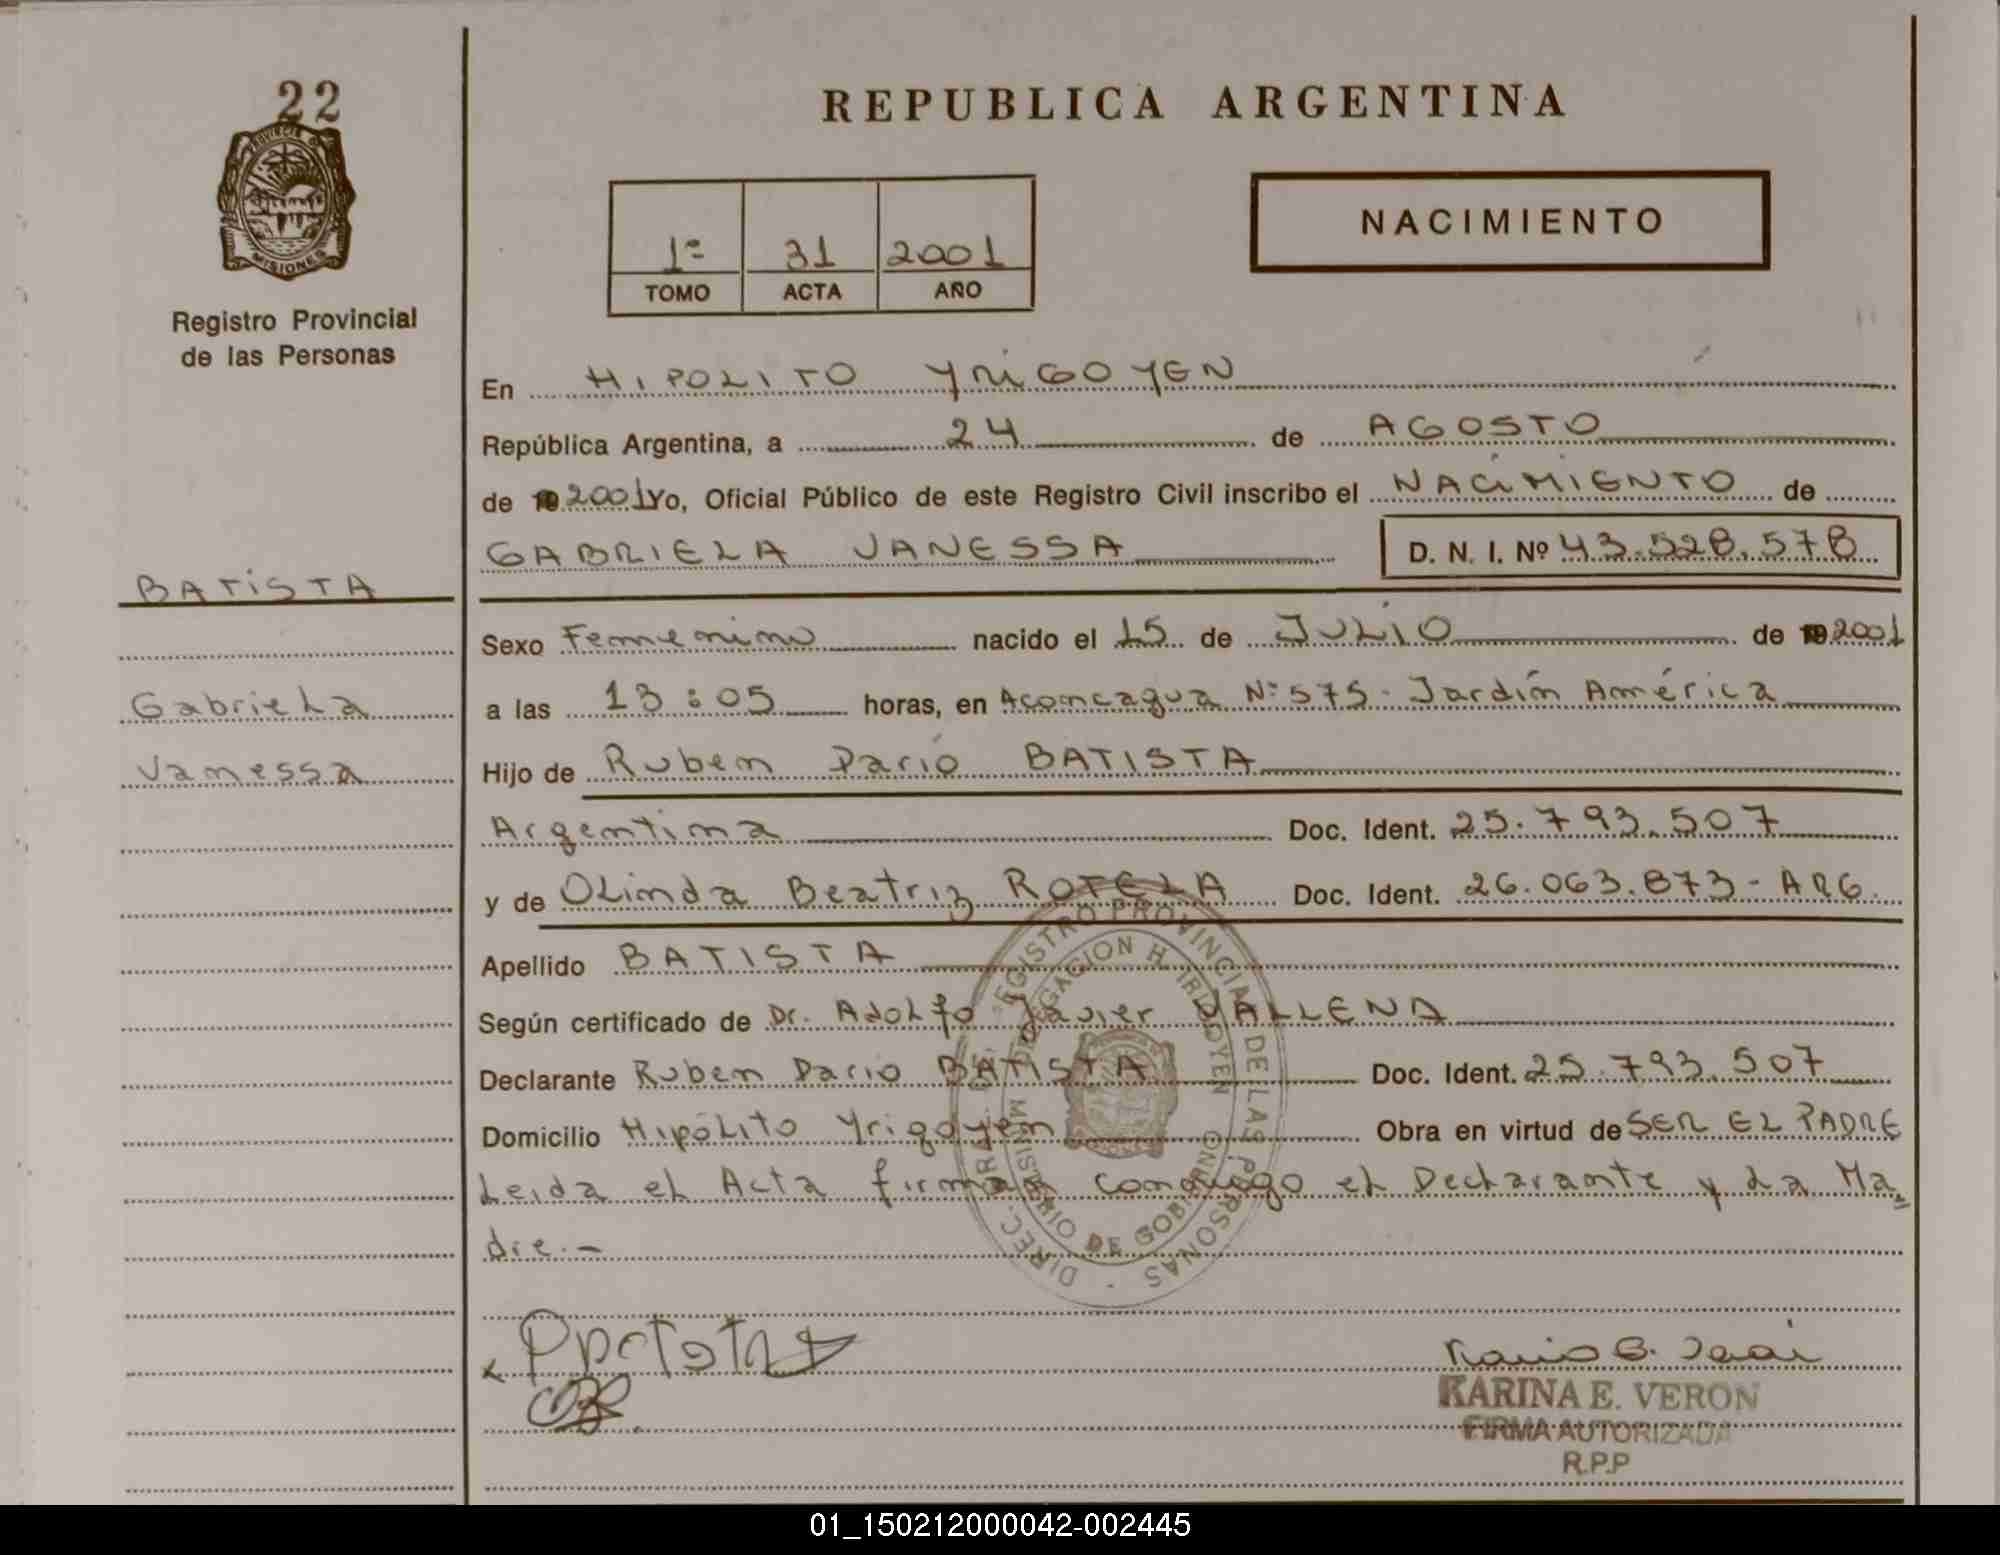 22
PROVINCIA DE
MISIONES
Registro Provincial
de las Personas
BATISTA
Gabriela
Vanessa
REPUBLICA ARGENTINA
1º 31 2001
TOMO ACTA AÑO
NACIMIENTO
En HIPOLITO YRIGOYEN
República Argentina, a 24 de AGOSTO
de 19 2001 Yo, Oficial Público de este Registro Civil inscribo el NACIMIENTO de
GABRIELA VANESSA D. N. I. Nº 43.528.578
Sexo Femenino nacido el 15 de JULIO de 19 2001
a las 13:05 horas, en Aconcagua Nº 575 - Jardín América
Hijo de Ruben Dario BATISTA
Argentina Doc. Ident. 25.793.507
y de Olinda Beatriz ROTELA Doc. Ident. 26.063.873 - ARG.
Apellido BATISTA
Según certificado de Dr. Adolfo Javier VALLENA
Declarante Ruben Dario BATISTA Doc. Ident. 25.793.507
Domicilio Hipólito Yrigoyen Obra en virtud de SER EL PADRE
Leida el Acta firman conmigo el Declarante y La Ma
dre.-
DIREC. GRAL. REGISTRO PROVINCIAL DE LAS PERSONAS -
DELEGACION H. IRIGOYEN
MINISTERIO DE GOBIERNO
KARINA E. VERON
FIRMA AUTORIZADA
R.P.P
01_150212000042-002445